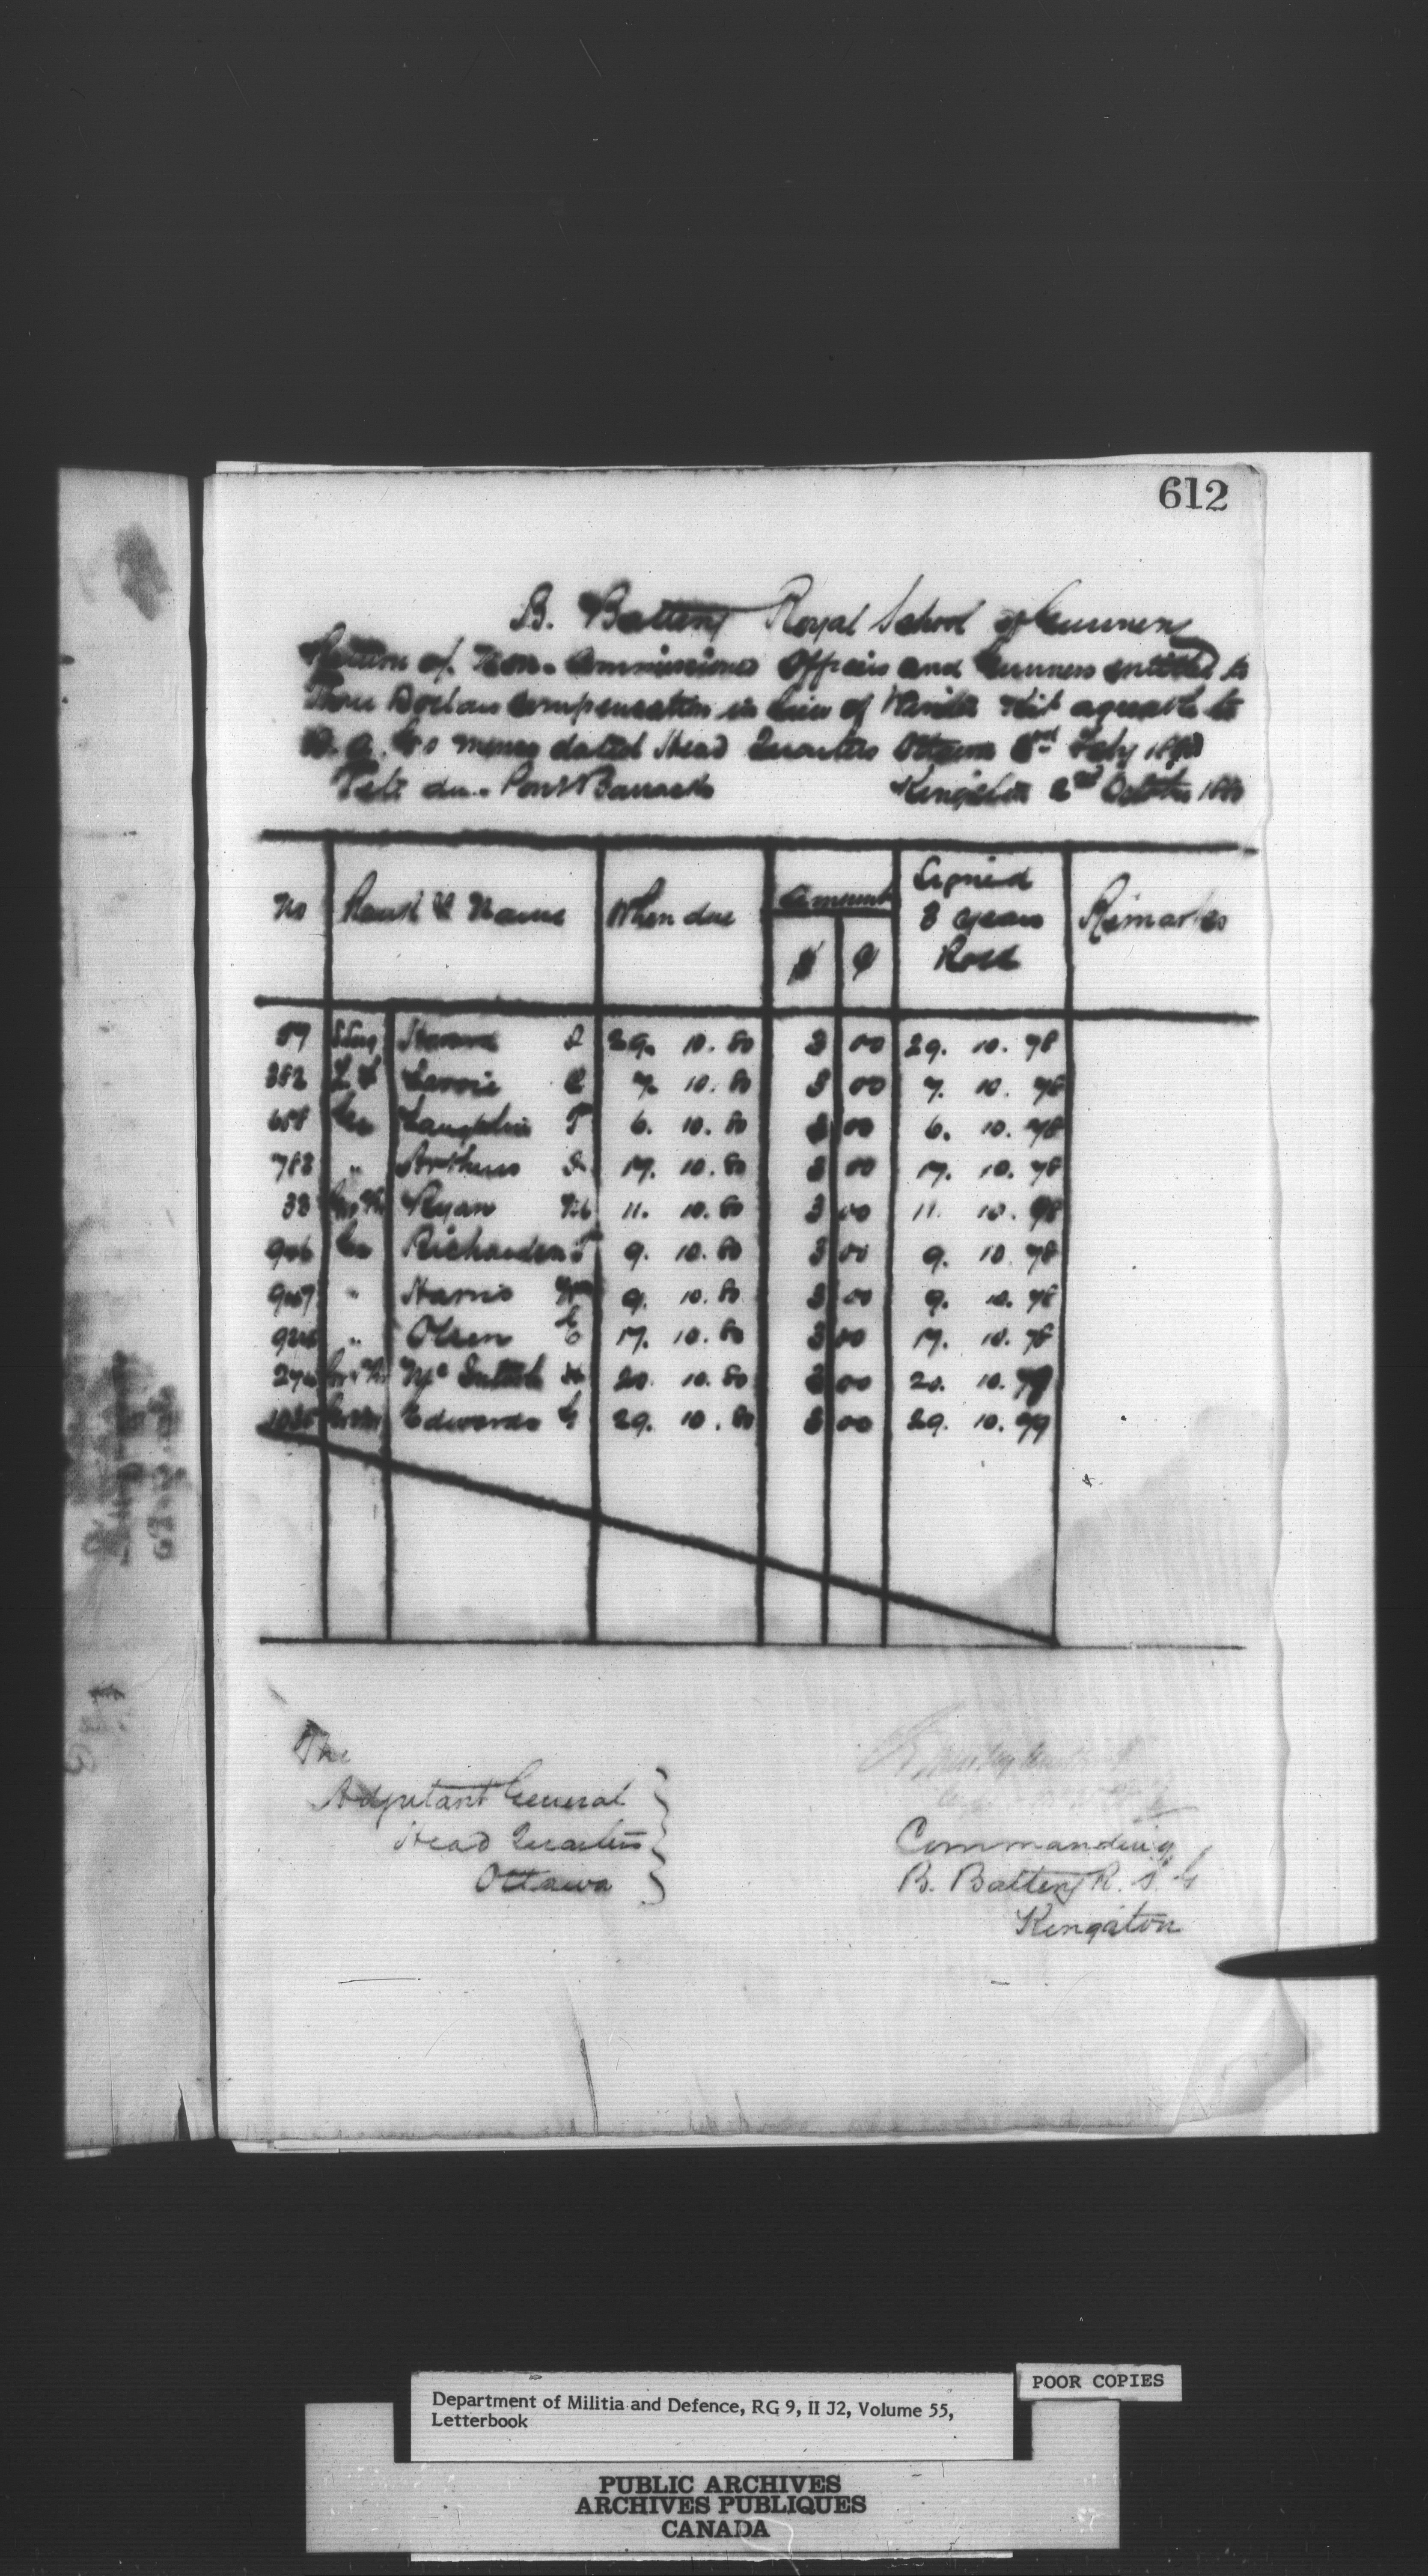 612
B. Battery Royal School of Gunnery
of Non. Commissioned Officers and Gunners entitled to
Three Dollars compensation in lieu of Kit agreeable to
memo dated Head Quarters Ottawa Feby
Tete du.. Pont Barracks Kingston 2nd October
No Rank & Name When due Amount Signed 3 years Roll Remarks
$ ¢
29. 10. 80 3 00 29. 10. 78
382 Lavoie 7. 10. 80 3 00 7. 10. 78
658 Gr Laughlin T 6. 10. 80 3 00 6. 10. 78
783 " Arthurs 17. 10. 80 3 00 17. 10. 78
33 Ryan 11. 10. 80 3 00 11. 10. 78
906 Gr Richardson T 9. 10. 80 3 00 9. 10. 78
907 " Harris Wm 9. 10. 80 3 00 9. 10. 78
" Olsen C 17. 10. 80 3 00 17. 10. 78
20. 10. 80 3 00 20. 10. 79
Edwards G 29. 10. 80 3 00 29. 10. 79
The
Adjutant General
Head Quarters
Ottawa
Commanding
B. Battery R. S. G
Kingston
POOR COPIES
Department of Militia and Defence, RG 9, II J2, Volume 55,
Letterbook
PUBLIC ARCHIVES
ARCHIVES PUBLIQUES
CANADA